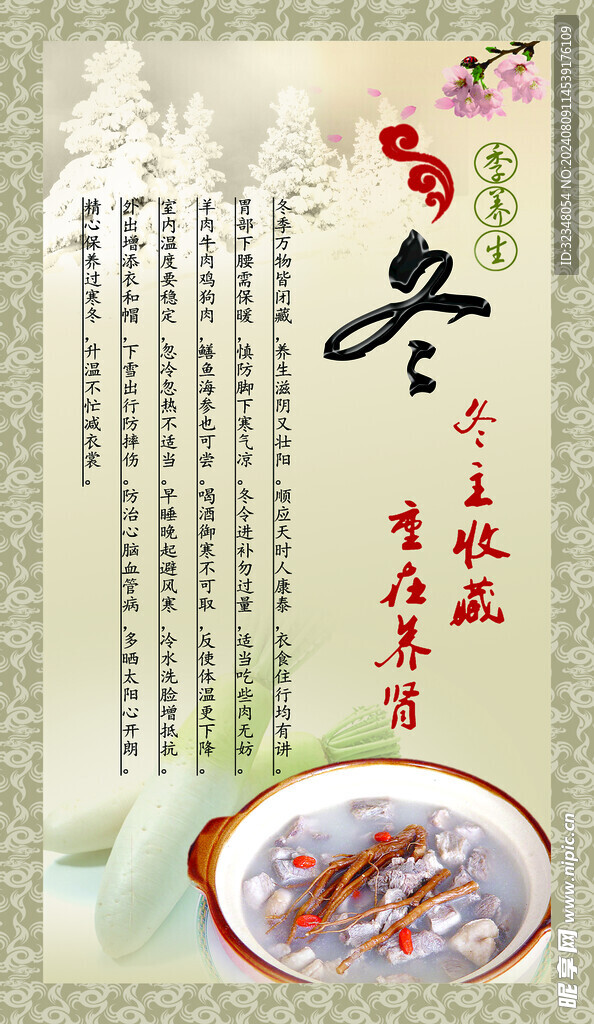 季养生
冬
冬主收藏
重在养肾
冬季万物皆闭藏，养生滋阴又壮阳。顺应天时人康泰，衣食住行均有讲。
胃部下腰需保暖，慎防脚下寒气凉。冬令进补勿过量，适当吃些肉无妨。
羊肉牛肉鸡狗肉，鳝鱼海参也可尝。喝酒御寒不可取，反使体温更下降。
室内温度要稳定，忽冷忽热不适当。早睡晚起避风寒，冷水洗脸增抵抗。
外出增添衣和帽，下雪出行防摔伤。防治心脑血管病，多晒太阳心开朗。
精心保养过寒冬，升温不忙减衣裳。
ID:32348054 NO:20240809114539176109
昵享网 www.nipic.cn